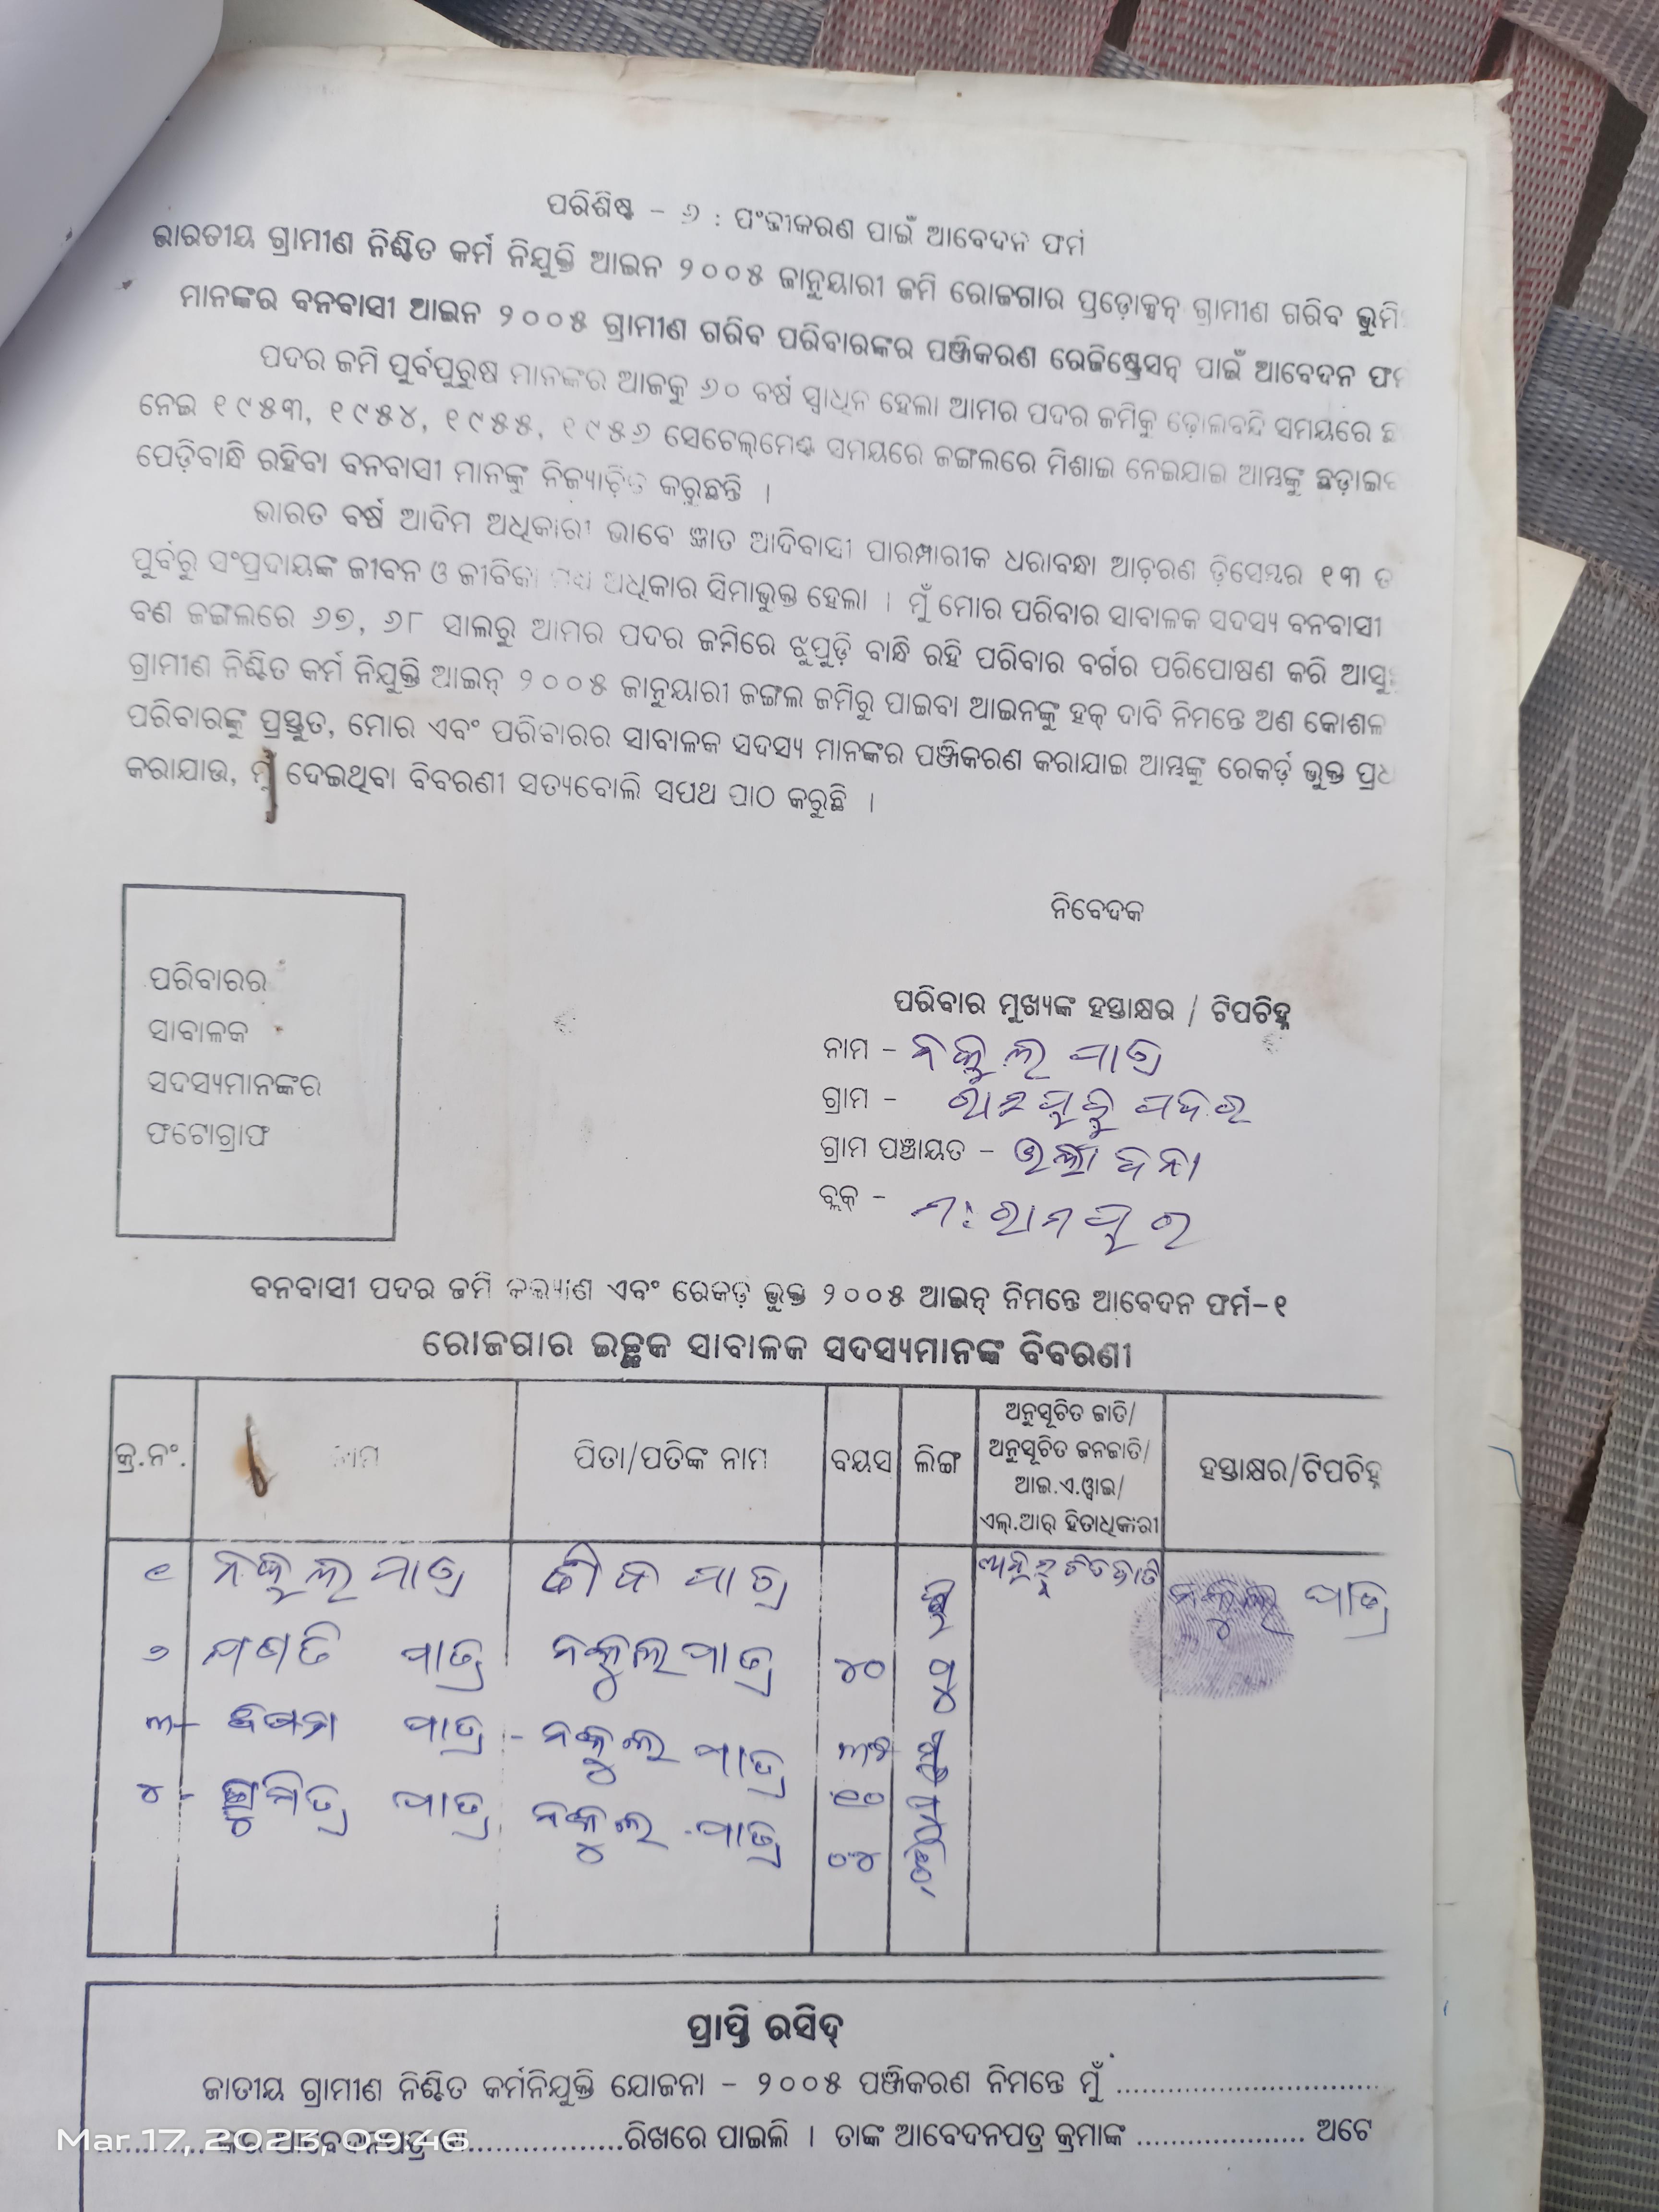 ପରିଶିଷ୍ଟ – ୬ : ପଂଜୀକରଣ ପାଇଁ ଆବେଦନ ଫର୍ମ
ଭାରତୀୟ ଗ୍ରାମୀଣ ନିଶ୍ଚିତ କର୍ମ ନିଯୁକ୍ତି ଆଇନ ୨୦୦୫ ଜାନୁୟାରୀ ଜମି ରୋଜଗାର ପ୍ରଡ଼ୋକ୍ସନ୍ ଗ୍ରାମୀଣ ଗରିବ
ମାନଙ୍କର ବନବାସୀ ଆଇନ ୨୦୦୫ ଗ୍ରାମୀଣ ଗରିବ ପରିବାରଙ୍କର ପଞ୍ଜିକରଣ ରେଜିଷ୍ଟ୍ରେସନ୍ ପାଇଁ ଆବେଦନ
ପଦର ଜମି ପୁର୍ବପୁରୁଷ ମାନଙ୍କର ଆଜକୁ ୬୦ ବର୍ଷ ସ୍ୱାଧିନ ହେଲା ଆମର ପଦର ଜମିକୁ ଢ଼ୋଲବନ୍ଦି ସମୟରେ
ନେଇ ୧୯୫୩, ୧୯୫୪, ୧୯୫୫, ୧୯୫୬ ସେଟେଲ୍‌ମେଣ୍ଟ ସମୟରେ ଜଙ୍ଗଲରେ ମିଶାଇ ନେଇଯାଇ ଆମ୍ଭଙ୍କୁ
ପେଡ଼ିବାନ୍ଧି ରହିବା ବନବାସୀ ମାନଙ୍କୁ ନିଜ୍ୟାଚ଼ିତ କରୁଛନ୍ତି ।
ଭାରତ ବର୍ଷ ଆଦିମ ଅଧିକାରୀ ଭାବେ ଜ୍ଞାତ ଆଦିବାସୀ ପାରମ୍ପାରୀକ ଧରାବନ୍ଧା ଆଚ଼ରଣ ଡ଼ିସେମ୍ବର ୧୩
ପୁର୍ବରୁ ସଂପ୍ରଦାୟଙ୍କ ଜୀବନ ଓ ଜୀବିକା ଅଧିକାର ସିମାଭୁକ୍ତ ହେଲା । ମୁଁ ମୋର ପରିବାର ସାବାଳକ ସଦସ୍ୟ ବନବାସୀ
ବଣ ଜଙ୍ଗଲରେ ୬୭, ୬୮ ସାଲରୁ ଆମର ପଦର ଜମିରେ ଝୁପୁଡ଼ି ବାନ୍ଧି ରହି ପରିବାର ବର୍ଗର ପରିପୋଷଣ କରି
ଗ୍ରାମୀଣ ନିଶ୍ଚିତ କର୍ମ ନିଯୁକ୍ତି ଆଇନ୍ ୨୦୦୫ ଜାନୁୟାରୀ ଜଙ୍ଗଲ ଜମିରୁ ପାଇବା ଆଇନଙ୍କୁ ହକ୍ ଦାବି ନିମନ୍ତେ ଅଣ କୋଶଳ
ପରିବାରଙ୍କୁ ପ୍ରସ୍ତୁତ, ମୋର ଏବଂ ପରିବାରର ସାବାଳକ ସଦସ୍ୟ ମାନଙ୍କର ପଞ୍ଜିକରଣ କରାଯାଇ ଆମ୍ଭଙ୍କୁ ରେକର୍ଡ଼ ଭୁକ୍ତ
କରାଯାଉ, ମୁଁ ଦେଇଥିବା ବିବରଣୀ ସତ୍ୟବୋଲି ସପଥ ପାଠ କରୁଛି ।
ନିବେଦକ
ପରିବାରର
ସାବାଳକ
ସଦସ୍ୟମାନଙ୍କର
ଫଟୋଗ୍ରାଫ
ପରିବାର ମୁଖ୍ୟଙ୍କ ହସ୍ତାକ୍ଷର / ଟିପଚିହ୍ନ
ନାମ – ନକୁଲ ପାତ୍ର
ଗ୍ରାମ –
ଗ୍ରାମ ପଞ୍ଚାୟତ –
ବ୍ଲକ୍ –
ବନବାସୀ ପଦର ଜମି କଲ୍ୟାଣ ଏବଂ ରେକଡ଼ ଭୁକ୍ତ ୨୦୦୫ ଆଇନ୍ ନିମନ୍ତେ ଆବେଦନ ଫର୍ମ–୧
ରୋଜଗାର ଇଚ୍ଛୁକ ସାବାଳକ ସଦସ୍ୟମାନଙ୍କ ବିବରଣୀ
କ୍ର.ନଂ. ନାମ ପିତା/ପତିଙ୍କ ନାମ ବୟସ ଲିଙ୍ଗ ଅନୁସୂଚିତ ଜାତି/ ଅନୁସୂଚିତ ଜନଜାତି/ ଆଇ.ଏ.ୱାଇ/ ଏଲ୍.ଆର୍ ହିତାଧିକାରୀ ହସ୍ତାକ୍ଷର/ଟିପଚିହ୍ନ
୧ ନକୁଲ ପାତ୍ର ପାତ୍ର ଅନୁସୂଚିତ ଜାତି ନକୁଲ ପାତ୍ର
୨ ପାତ୍ର ନକୁଲ ପାତ୍ର ୪୦
୩ ପାତ୍ର – ନକୁଲ ପାତ୍ର
୪ – ସୁମିତ୍ର ପାତ୍ର ନକୁଲ ପାତ୍ର
ପ୍ରାପ୍ତି ରସିଦ୍
ଜାତୀୟ ଗ୍ରାମୀଣ ନିଶ୍ଚିତ କର୍ମନିଯୁକ୍ତି ଯୋଜନା – ୨୦୦୫ ପଞ୍ଜିକରଣ ନିମନ୍ତେ ମୁଁ ..............................
ଆବେଦନପତ୍ର ....................ରିଖରେ ପାଇଲି । ତାଙ୍କ ଆବେଦନପତ୍ର କ୍ରମାଙ୍କ .................... ଅଟେ
Mar 17, 2023, 09:46